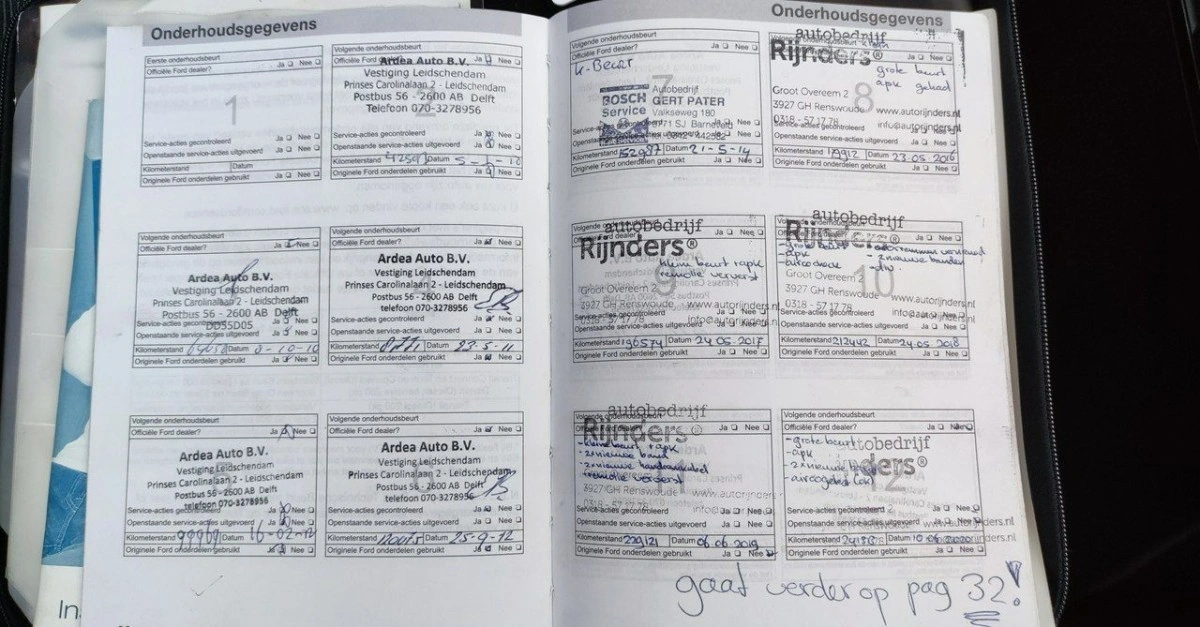 Onderhoudsgegevens
Eerste onderhoudsbeurt
Officiële Ford dealer? Ja Nee
1
Service-acties gecontroleerd Ja Nee
Openstaande service-acties uitgevoerd Ja Nee
Kilometerstand Datum
Originele Ford onderdelen gebruikt Ja Nee
Volgende onderhoudsbeurt
Officiële Ford dealer? Ja Nee
Ardea Auto B.V.
Vestiging Leidschendam
Prinses Carolinalaan 2 - Leidschendam
Postbus 56 - 2600 AB Delft
Telefoon 070-3278956
Service-acties gecontroleerd Ja Nee
Openstaande service-acties uitgevoerd Ja Nee
Kilometerstand Datum
Originele Ford onderdelen gebruikt Ja Nee
Volgende onderhoudsbeurt
Officiële Ford dealer? Ja Nee
Ardea Auto B.V.
Vestiging Leidschendam
Prinses Carolinalaan 2 - Leidschendam
Postbus 56 - 2600 AB Delft
DD55D05
Openstaande service-acties uitgevoerd Ja Nee
Kilometerstand Datum
Originele Ford onderdelen gebruikt Ja Nee
Volgende onderhoudsbeurt
Officiële Ford dealer? Ja Nee
Ardea Auto B.V.
Vestiging Leidschendam
Prinses Carolinalaan 2 - Leidschendam
Postbus 56 - 2600 AB Delft
telefoon 070-3278956
Service-acties gecontroleerd Ja Nee
Openstaande service-acties uitgevoerd Ja Nee
Kilometerstand Datum 23-5-11
Originele Ford onderdelen gebruikt Ja Nee
Volgende onderhoudsbeurt
Officiële Ford dealer? Ja Nee
Ardea Auto B.V.
Vestiging Leidschendam
Prinses Carolinalaan 2 - Leidschendam
Postbus 56 - 2600 AB Delft
telefoon 070-3278956
Service-acties gecontroleerd Ja Nee
Openstaande service-acties uitgevoerd Ja Nee
Kilometerstand Datum 16-02-12
Originele Ford onderdelen gebruikt Ja Nee
Volgende onderhoudsbeurt
Officiële Ford dealer? Ja Nee
Ardea Auto B.V.
Vestiging Leidschendam
Prinses Carolinalaan 2 - Leidschendam
Postbus 56 - 2600 AB Delft
telefoon 070-3278956
Service-acties gecontroleerd Ja Nee
Openstaande service-acties uitgevoerd Ja Nee
Kilometerstand Datum 25-9-12
Originele Ford onderdelen gebruikt Ja Nee
Onderhoudsgegevens
Volgende onderhoudsbeurt
Officiële Ford dealer? Ja Nee
K-Beurt
7
BOSCH Service
Autobedrijf
GERT PATER
Valkseweg 180
3771 SJ Barneveld
Kilometerstand 152987 Datum 21-5-14
Originele Ford onderdelen gebruikt Ja Nee
autobedrijf
Rijnders®
grote beurt
apk gehad
8
Groot Overeem 2
3927 GH Renswoude www.autorijnders.nl
0318 - 57.17.78 info@autorijnders.nl
Openstaande service-acties uitgevoerd Ja Nee
Kilometerstand Datum 23.05.2016
Originele Ford onderdelen gebruikt Ja Nee
autobedrijf
Rijnders®
kleine beurt + apk
remolie ververst
9
Groot Overeem 2
3927 GH Renswoude www.autorijnders.nl
0318 - 57.17.78 info@autorijnders.nl
Openstaande service-acties uitgevoerd Ja Nee
Kilometerstand 196574 Datum 24.05.2017
Originele Ford onderdelen gebruikt Ja Nee
autobedrijf
- grote beurt
- apk
- 2 nieuwe banden
10
Groot Overeem 2
3927 GH Renswoude www.autorijnders.nl
0318 - 57.17.78 info@autorijnders.nl
Openstaande service-acties uitgevoerd Ja Nee
Kilometerstand 212442 Datum 24.05.2018
Originele Ford onderdelen gebruikt Ja Nee
autobedrijf
Rijnders®
- kleine beurt + apk
- remolie ververst
3927 GH Renswoude www.autorijnders
0318 - 57.17.78
Service-acties gecontroleerd Ja Nee
Openstaande service-acties uitgevoerd Ja Nee
Kilometerstand 229121 Datum 06.06.2019
Originele Ford onderdelen gebruikt Ja Nee
Volgende onderhoudsbeurt
Officiële Ford dealer? Ja Nee
- grote beurt
- apk
Service-acties gecontroleerd Ja Nee
Openstaande service-acties uitgevoerd Ja Nee
Kilometerstand Datum 10.06.2020
Originele Ford onderdelen gebruikt Ja Nee
gaat verder op pag 32!